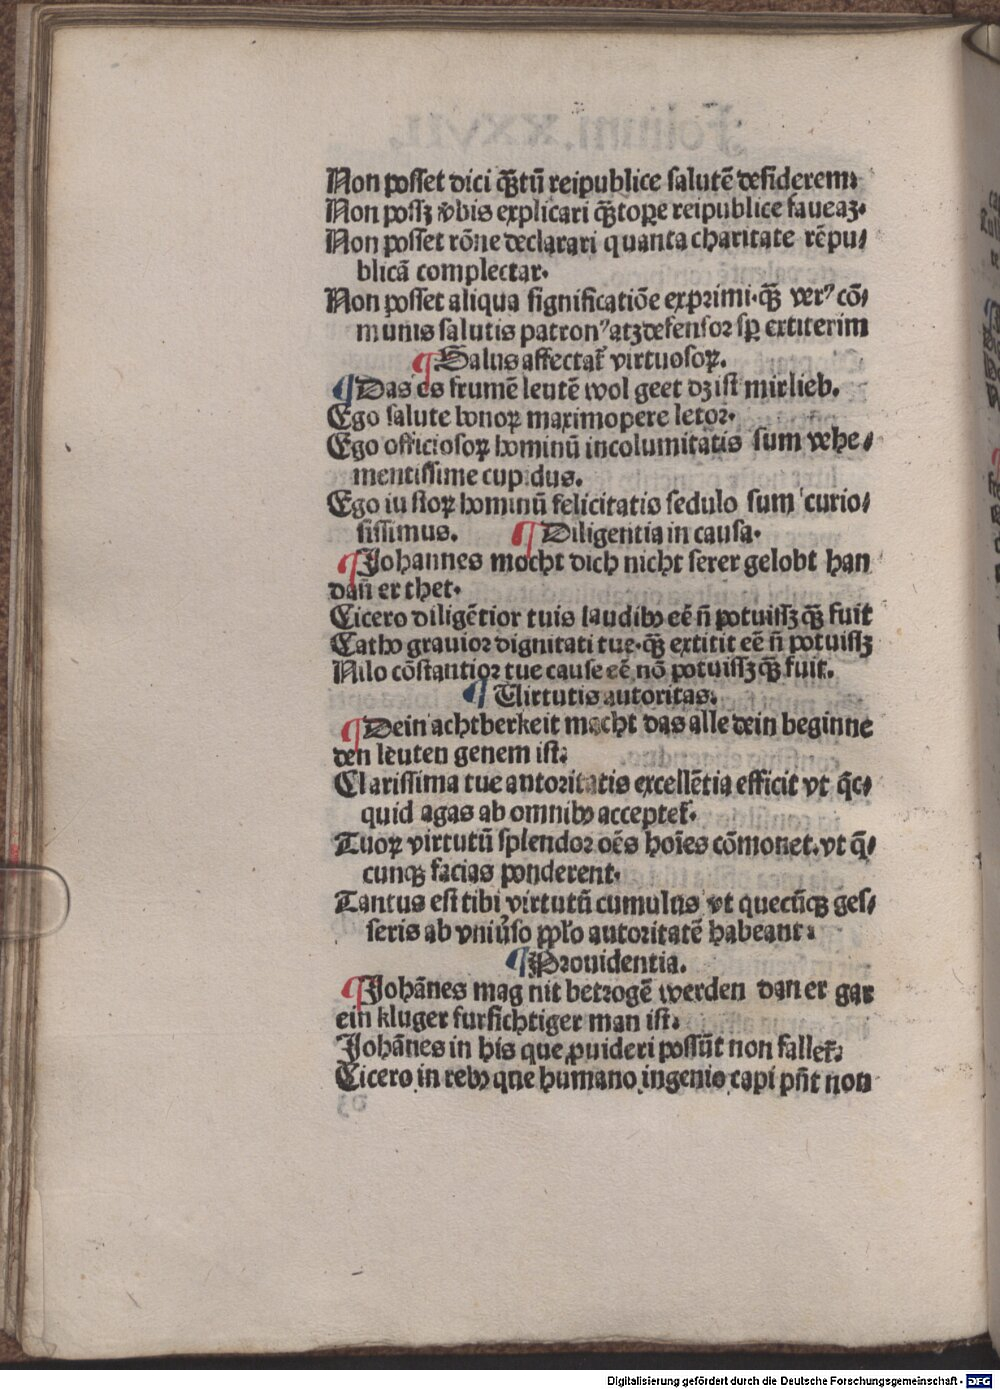 Non posset dici q̄ꝫtū reipublice salutē desiderem:
Non possꝫ vobis explicari q̄ꝫtoꝑe reipublice faueaꝫ.
Non posset rōne declarari quanta charitate rēpu⸗
blicā complectar.
Non posset aliqua significatiōe exprimi.q̄ꝫ verꝰ cō⸗
munis salutis patronꝰ atqꝫ defensor sꝑ extiterim
¶ Salus affectat᷑ virtuosoꝝ.
¶ Das es frumē leutē wol geet dꝫ ist mir lieb.
Ego salute bonoꝝ maximopere letor.
Ego officiosoꝝ hominū incolumitatis sum vehe⸗
mentissime cupidus.
Ego iustoꝝ hominū felicitatis sedulo sum curio⸗
sissimus. ¶ Diligentia in causa.
¶ Johannes mocht dich nicht serer gelobt han
dan̄ er thet.
Cicero diligētior tuis laudibꝰ eē n̄ potuissꝫ q̄ꝫ fuit
Catho grauior dignitati tue.q̄ꝫ extitit eē n̄ potuissꝫ
Nilo cōstantior tue cause eē nō potuissꝫ q̄ꝫ fuit.
¶ Uirtutis autoritas.
¶ Dein achtberkeit macht das alle dein beginne
den leuten genem ist:
Clarissima tue autoritatis excellētia efficit vt q̄c⸗
quid agas ab omnibꝰ acceptet᷑.
Tuoꝝ virtutū splendor oēs hoīes cōmonet.vt q̄⸗
cunqꝫ facias ponderent.
Tantus est tibi virtutū cumulus vt quecūqꝫ ges⸗
seris ab vniu̓so ppl̓o autoritatē habeant:
¶ Prouidentia.
¶ Johānes mag nit betrogē werden dan er gar
ein kluger fursichtiger man ist.
Johānes in his que ꝓuideri possūt non fallet᷑:
Cicero in rebꝰ que humano ingenio capi pn̄t non
Digitalisierung gefördert durch die Deutsche Forschungsgemeinschaft - DFG